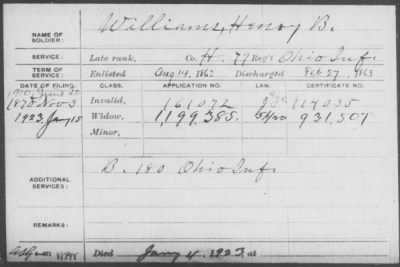 NAME OF SOLDIER: Williams, Henry B.
SERVICE: Late rank, Co. H. 79 Reg't Ohio Inf.
TERM OF SERVICE: Enlisted Aug 14, 1862 Discharged Feb 27, 1863
DATE OF FILING. CLASS. APPLICATION NO. LAW. CERTIFICATE NO.
1870 Nov 3 Invalid, 161072
1923 Jany 15 Widow, 1199.385. 931,507
Minor,
ADDITIONAL SERVICES: B. 180 Ohio Inf.
REMARKS:
Died Jany 4, 1923, at